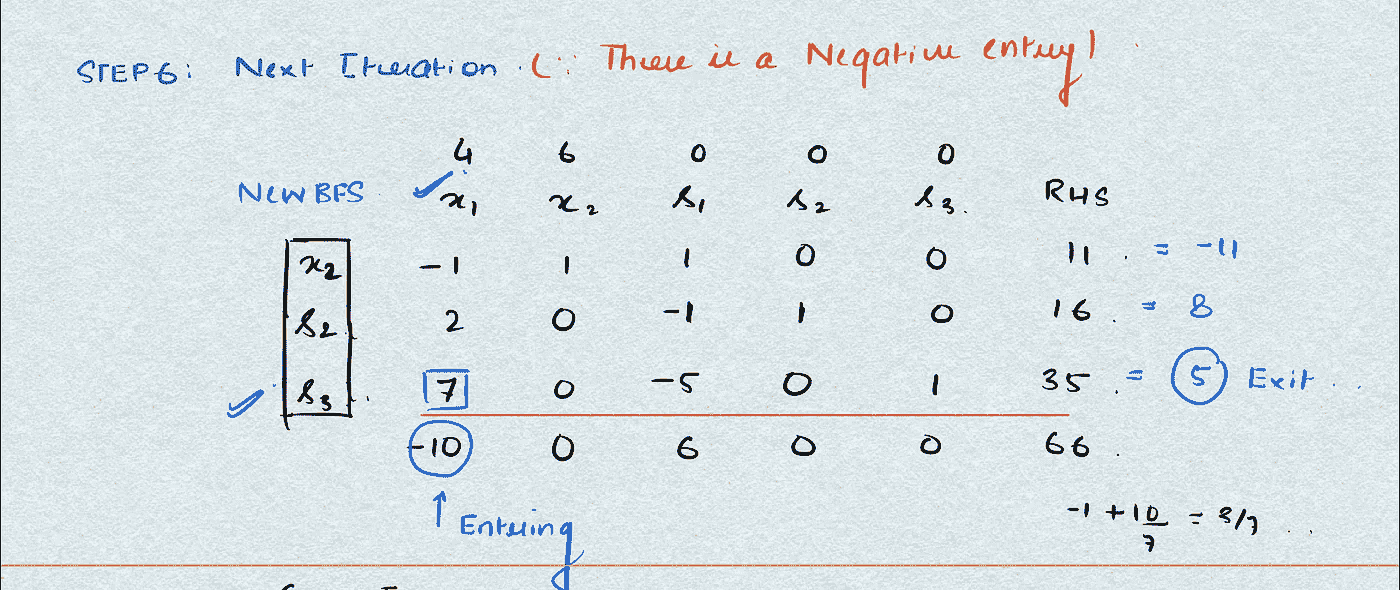 STEP6: Next Iteration. (∵ There is a Negative entry)
4 6 0 0 0
NEW BFS x₁ x₂ s₁ s₂ s₃. RHS
x₂ -1 1 1 0 0 11. = -11
s₂ 2 0 -1 1 0 16. = 8
s₃ 7 0 -5 0 1 35. = 5 Exit..
-10 0 6 0 0 66.
↑ Entering
-1 + 10/7 = 3/7 ..